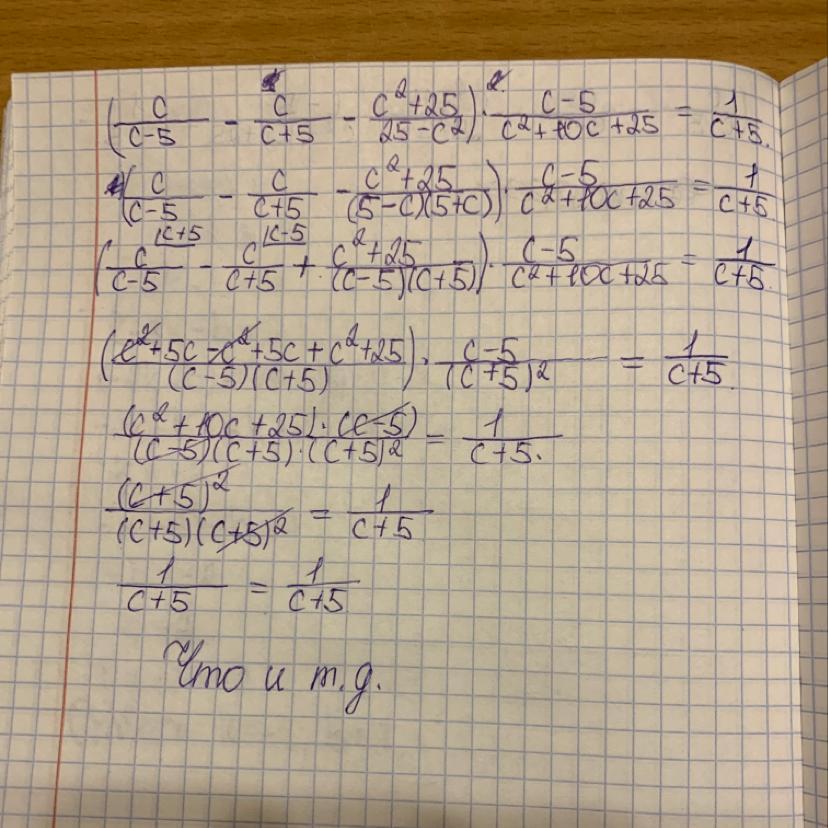 (c/(c-5) - c/(c+5) - (c²+25)/(25-c²)) · (c-5)/(c²+10c+25) = 1/(c+5).
(c/(c-5) - c/(c+5) - (c²+25)/((5-c)(5+c))) · (c-5)/(c²+10c+25) = 1/(c+5)
(c/(c-5) |c+5 - c/(c+5) |c-5 + (c²+25)/((c-5)(c+5))) · (c-5)/(c²+10c+25) = 1/(c+5).
((c²+5c-c²+5c+c²+25)/((c-5)(c+5))) · (c-5)/(c+5)² = 1/(c+5).
((c²+10c+25)·(c-5))/((c-5)(c+5)·(c+5)²) = 1/(c+5).
(c+5)²/((c+5)(c+5)²) = 1/(c+5)
1/(c+5) = 1/(c+5)
Что и т.д.